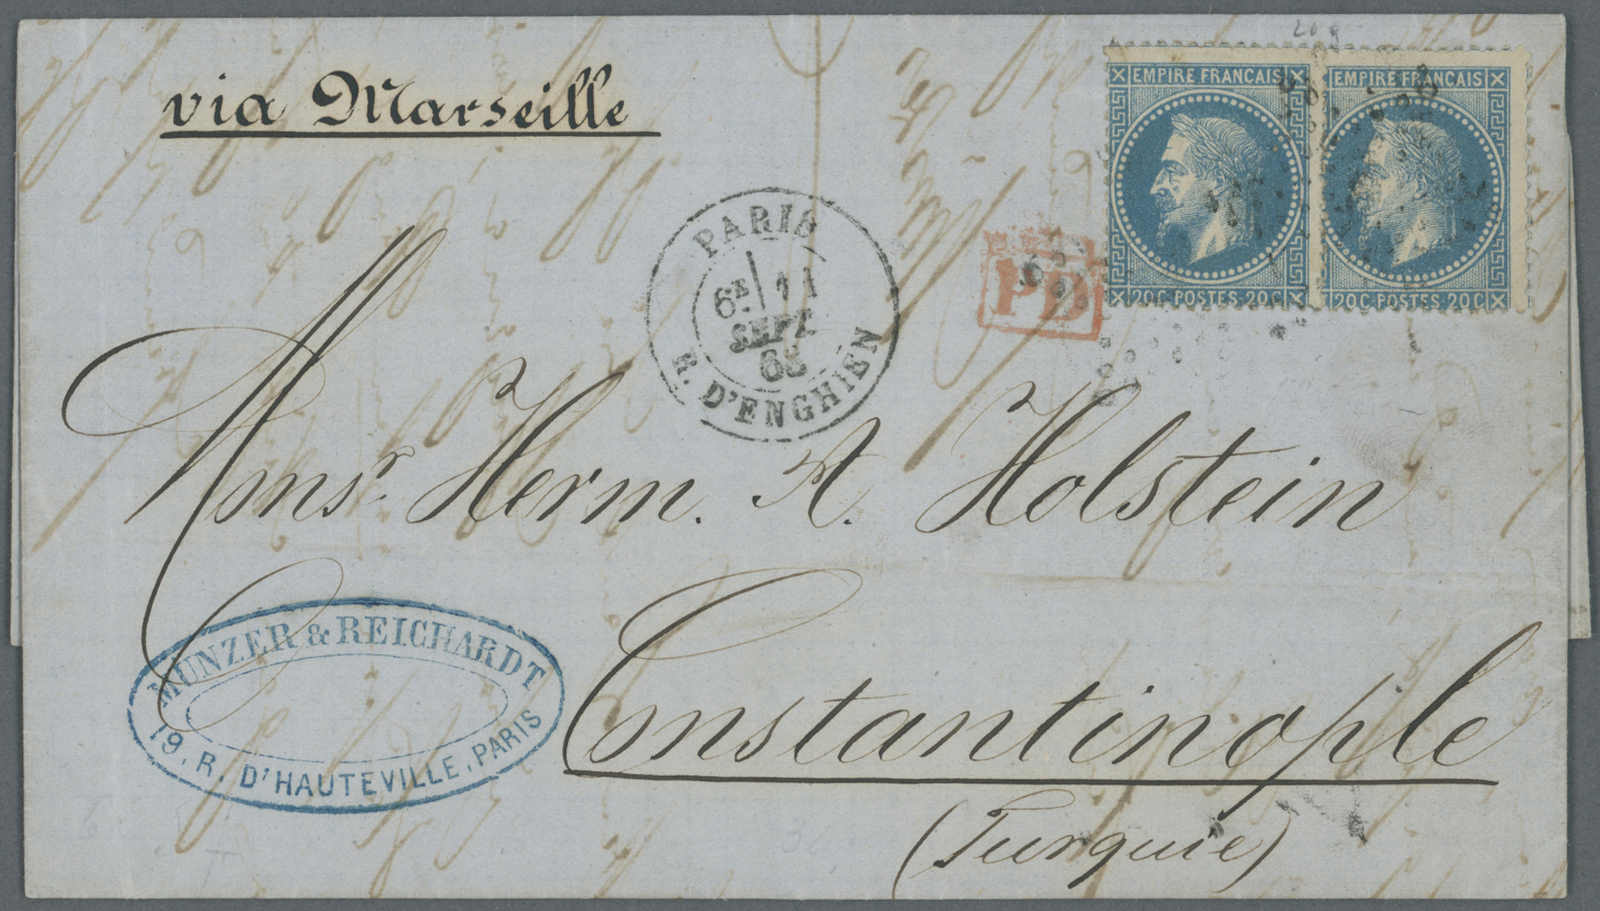 via Marseille
20
EMPIRE FRANÇAIS
EMPIRE FRANÇAIS
20 C. POSTES. 20 C.
20 C. POSTES. 20 C.
PARIS
6E 11
SEPT
68
R. D'ENGHIEN
PD
Monsr. Herm. A. Holstein
MUNZER & REICHARDT
19, R. D'HAUTEVILLE, PARIS
Constantinople
(Turquie)